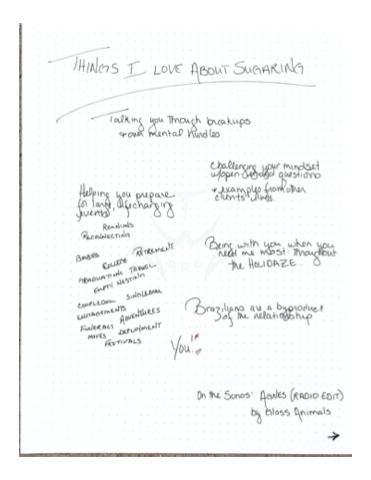 THINGS I LOVE ABOUT SUGARING
Talking you through breakups
+ our mental hurdles
Challenging your mindset
w/open ended questions
+ examples from other
clients lives.
Helping you prepare
for large, life changing
events!
REUNIONS
RECONNECTION
BABIES
COLLEGE RETIREMENTS
GRADUATIONS TRAVEL
EMPTY NESTING
COUPLEDOM SINGLEDOM
ENGAGEMENTS
FUNERALS ADVENTURES
MOVES DEPLOYMENT
FESTIVALS
Being with you when you
need me most: throughout
the HOLIDAZE.
Brazilians are a byproduct
of the relationship
You!
On the Sonos: Agnes (RADIO EDIT)
by Glass Animals